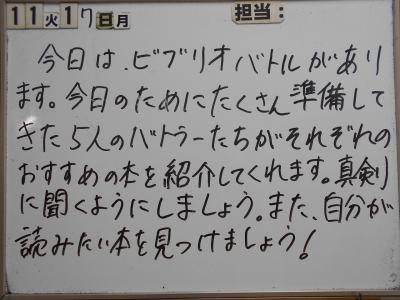 11火17日月 担当:
今日は、ビブリオバトルがあり
ます。今日のためにたくさん準備して
きた5人のバトラーたちがそれぞれの
おすすめの本を紹介してくれます。真剣
に聞くようにしましょう。また、自分が
読みたい本を見つけましょう!